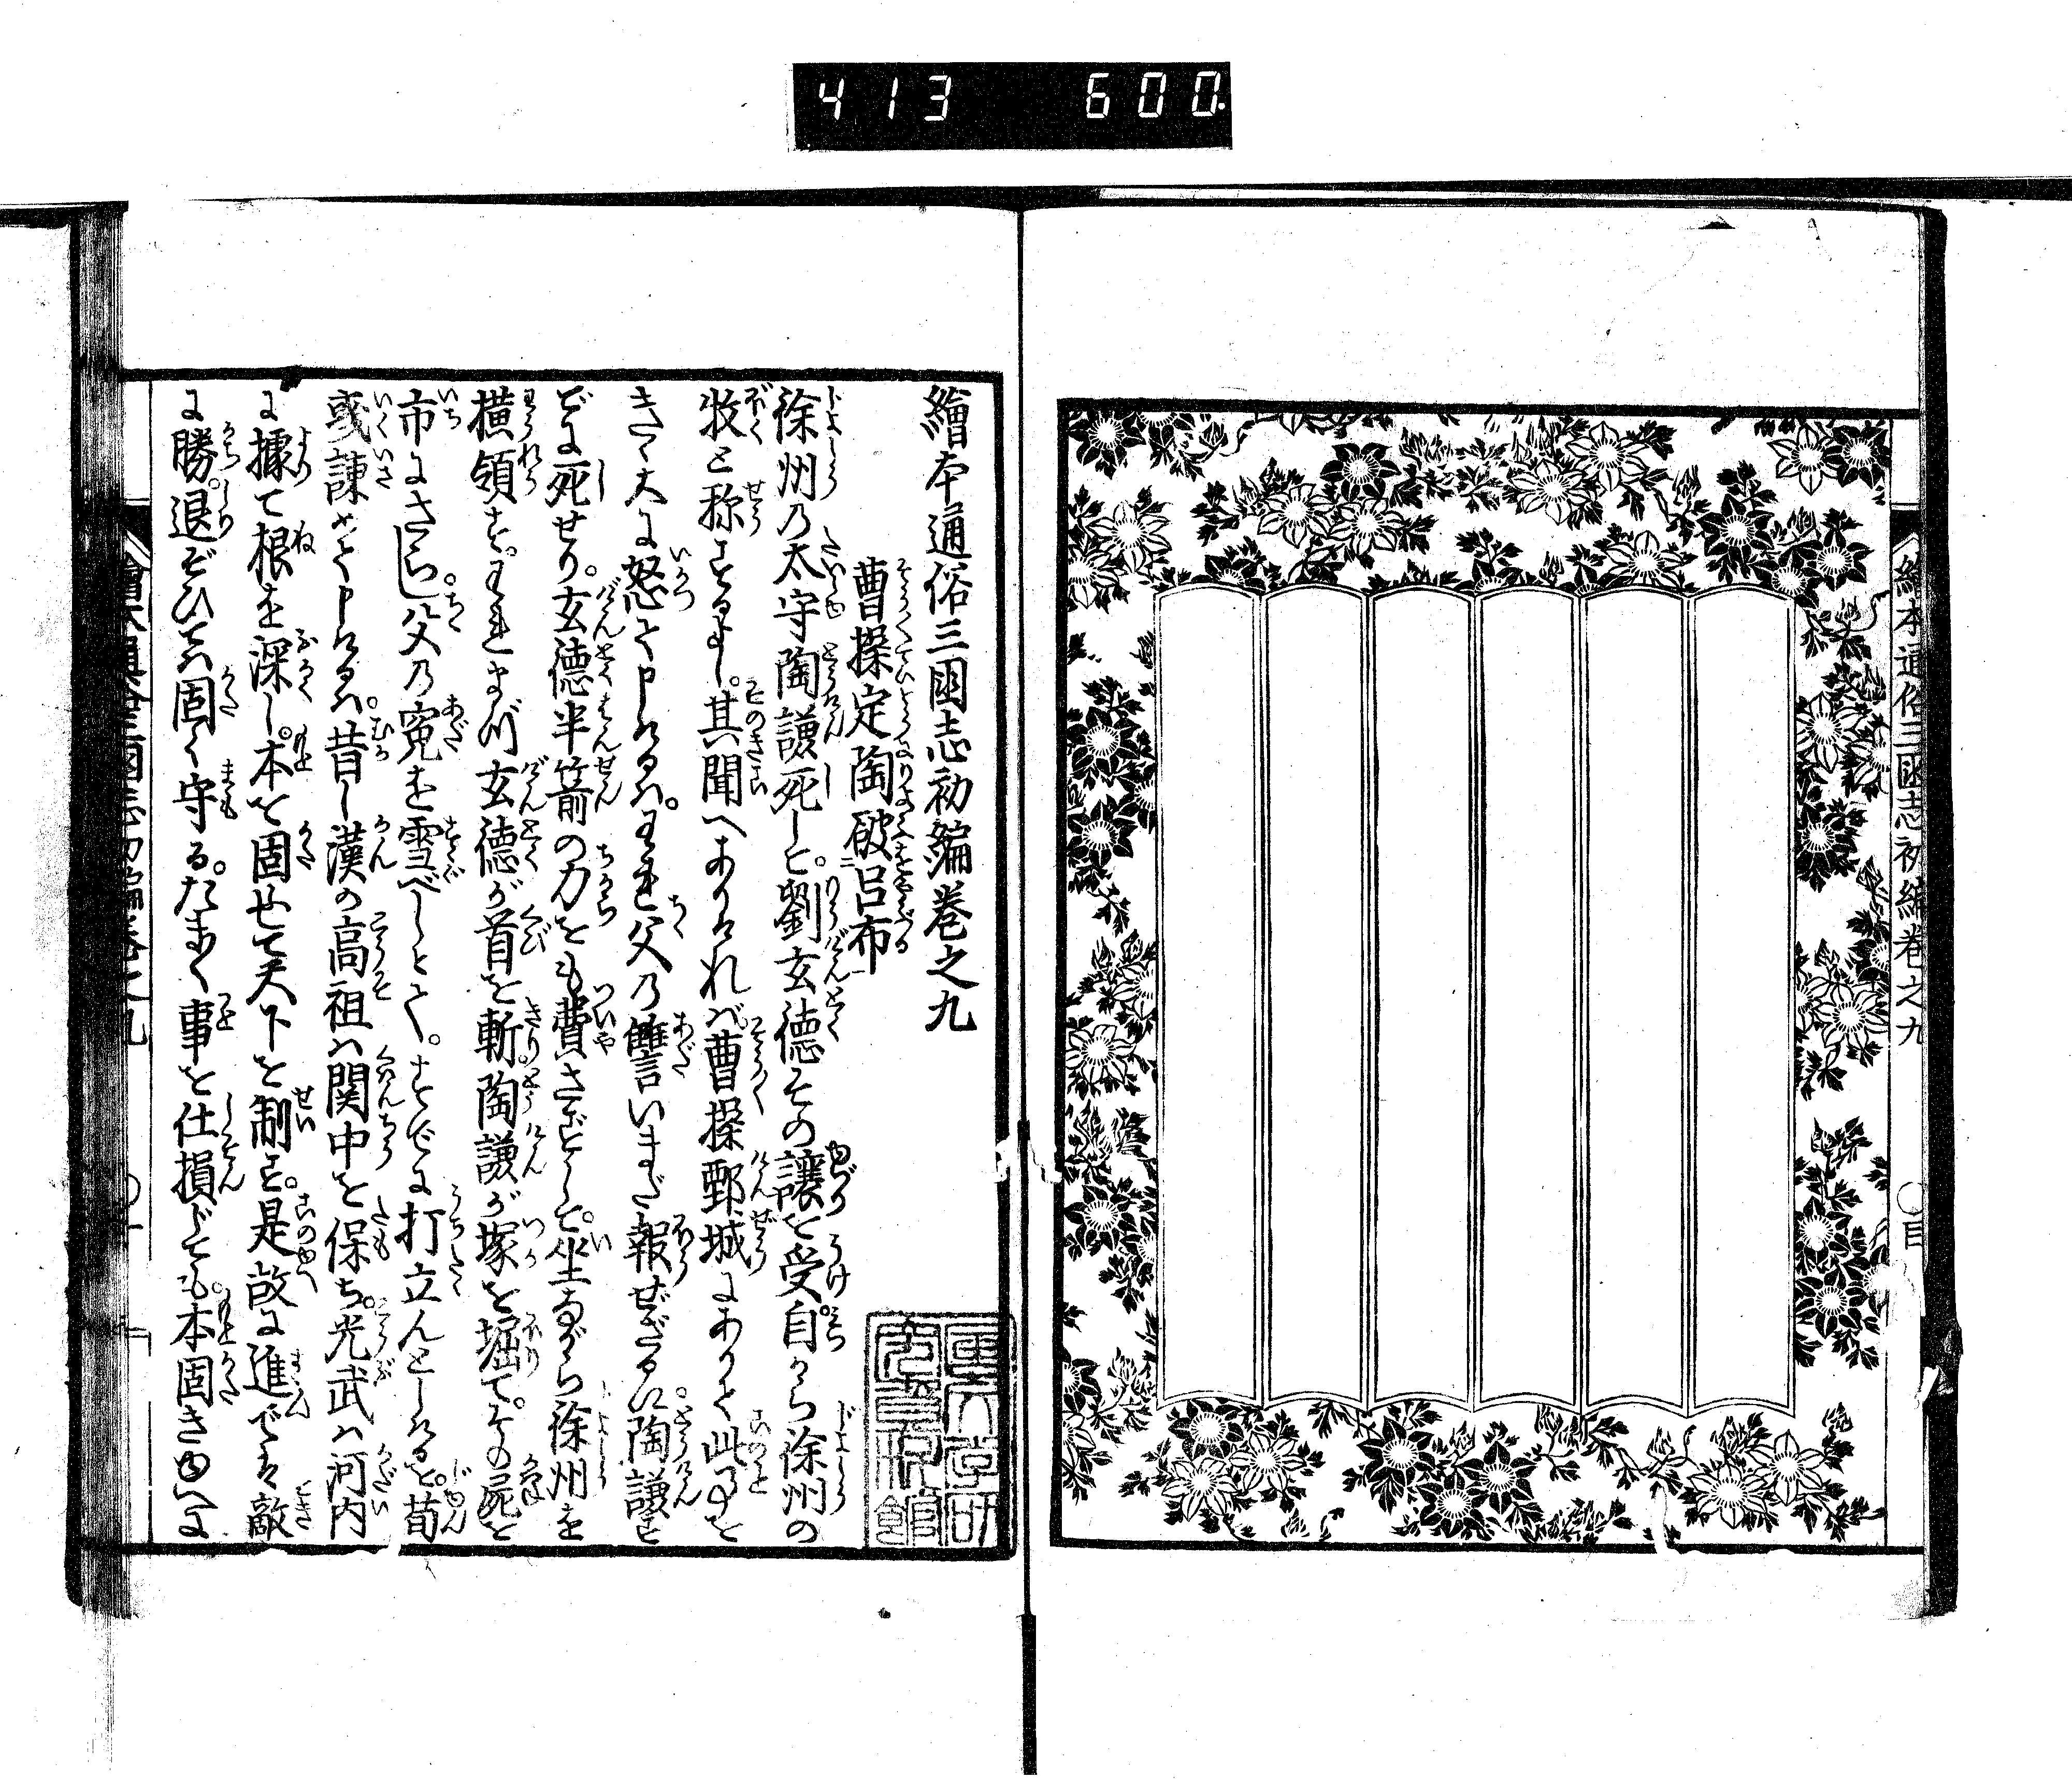 413 600
繪本通俗三國志初編巻之九
○目
繪本通俗三國志初編巻之九
曹操定陶破呂布
徐州乃太守陶謙死しと。劉玄徳その譲を受。自から徐州の
牧と称するよし。其聞へありけれバ。曹操鄄城にありて此ことを
きゝ大に怒て申けるハ。われ父乃讐いまだ報ぜざるに。陶謙す
でに死せり。玄徳半箭の力をも費さずして。坐ながら徐州を
横領す。われまづ玄徳が首を斬。陶謙が塚を堀て。その屍を
市にさらし。父乃寃を雪べしとて。すでに打立んとしけるを。荀
彧諫めて申けるハ。昔し漢の高祖ハ関中を保ち。光武ハ河内
に據て根を深し。本を固せて天下を制す。是故に進でハ敵
に勝。退ぞひてハ固く守る。たまく事を仕損じても。本固きゆへに